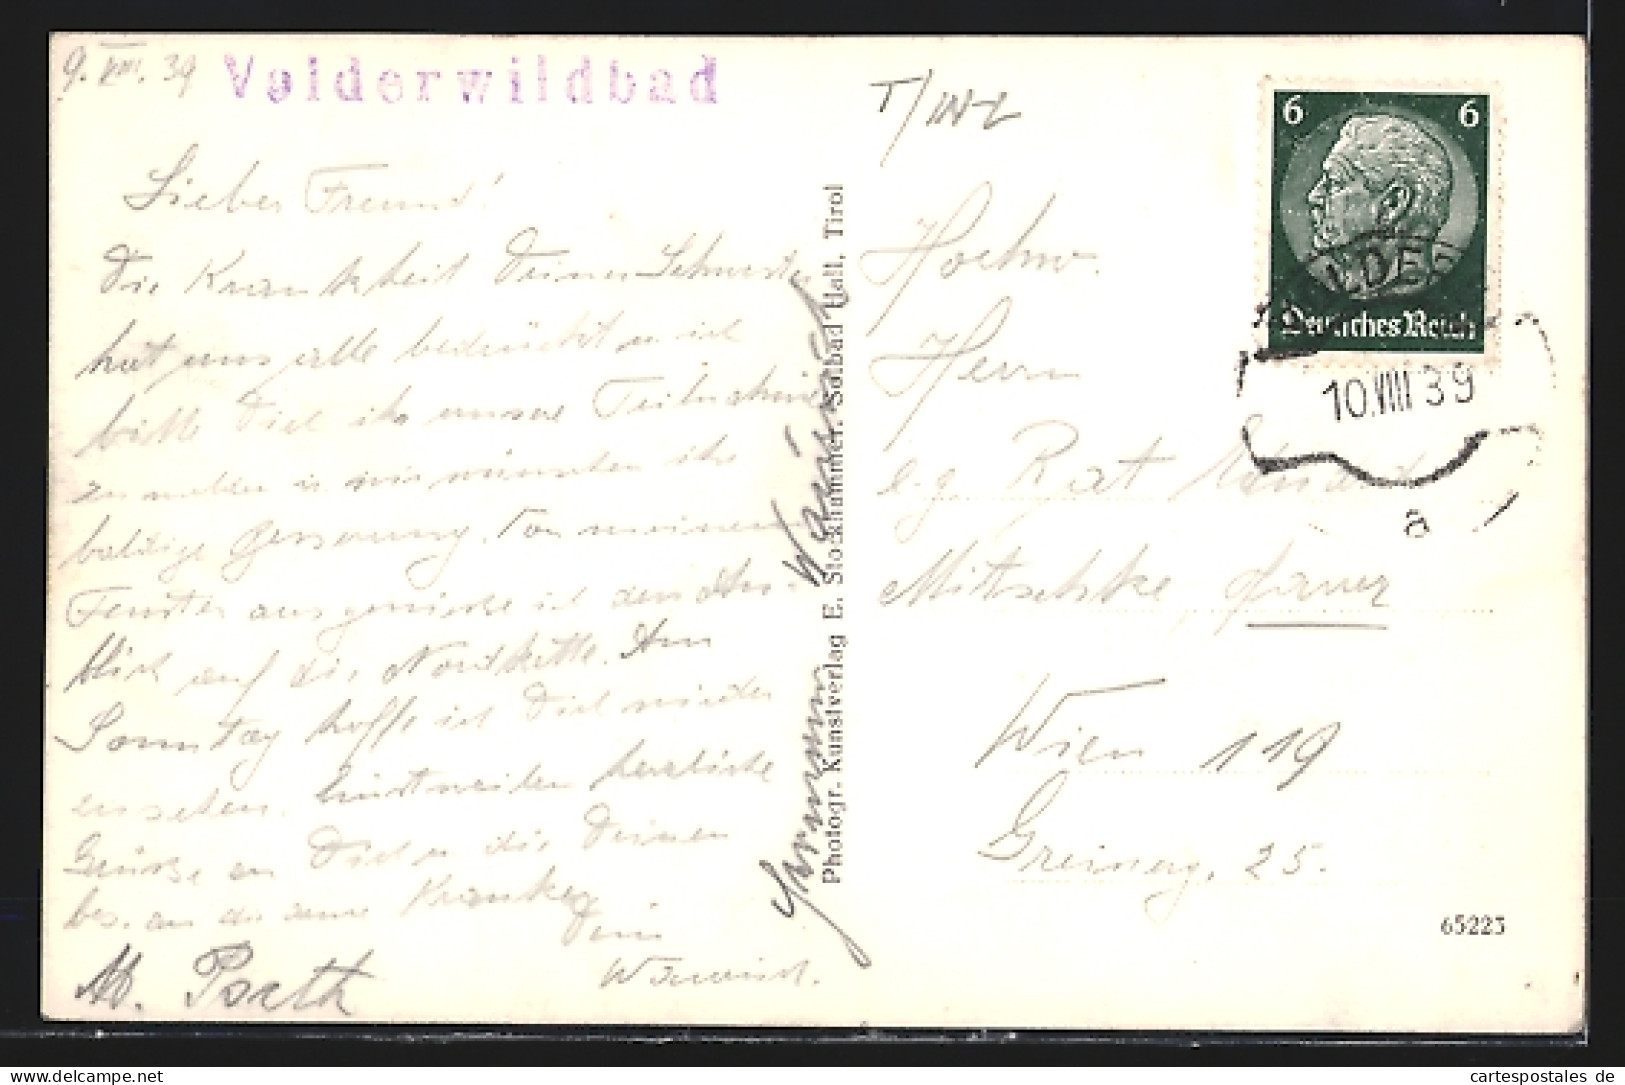 9. VIII. 39 Volderwildbad
Lieber Freund!
Die Krankheit Deiner Schwester
hat uns alle bedrückt u. ich
bitte Dich ihr unsere Teilnahme
zu melden u. wir wünschen ihr
baldige Besserung. Von meinem
Fenster aus geniesse ich den An-
blick auf die Nordkette. Am
Sonntag hoffe ich Dich wieder
zu sehen. Einstweilen herzliche
Grüsse an Dich u. die Deinen
bes. an die arme Kranke
Dein
Photogr. Kunstverlag E. Stockhammer, Solbad Hall, Tirol
T/INL
Hochw.
Herrn
e.g. Rat
Mitschke, Pfarrer
Wien 119
Greinerg. 25.
6 6
Deutsches Reich
10.VIII 39
a
65223
cartespostales de